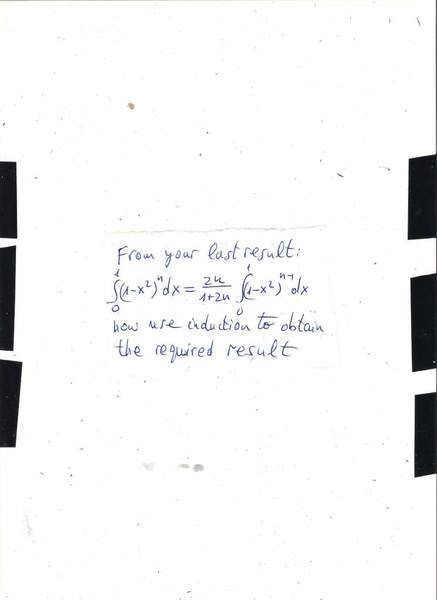 From your last result:
∫₀¹(1-x²)ⁿdx = 2n/1+2n ∫₀¹(1-x²)ⁿ⁻¹dx
now use induction to obtain
the required result